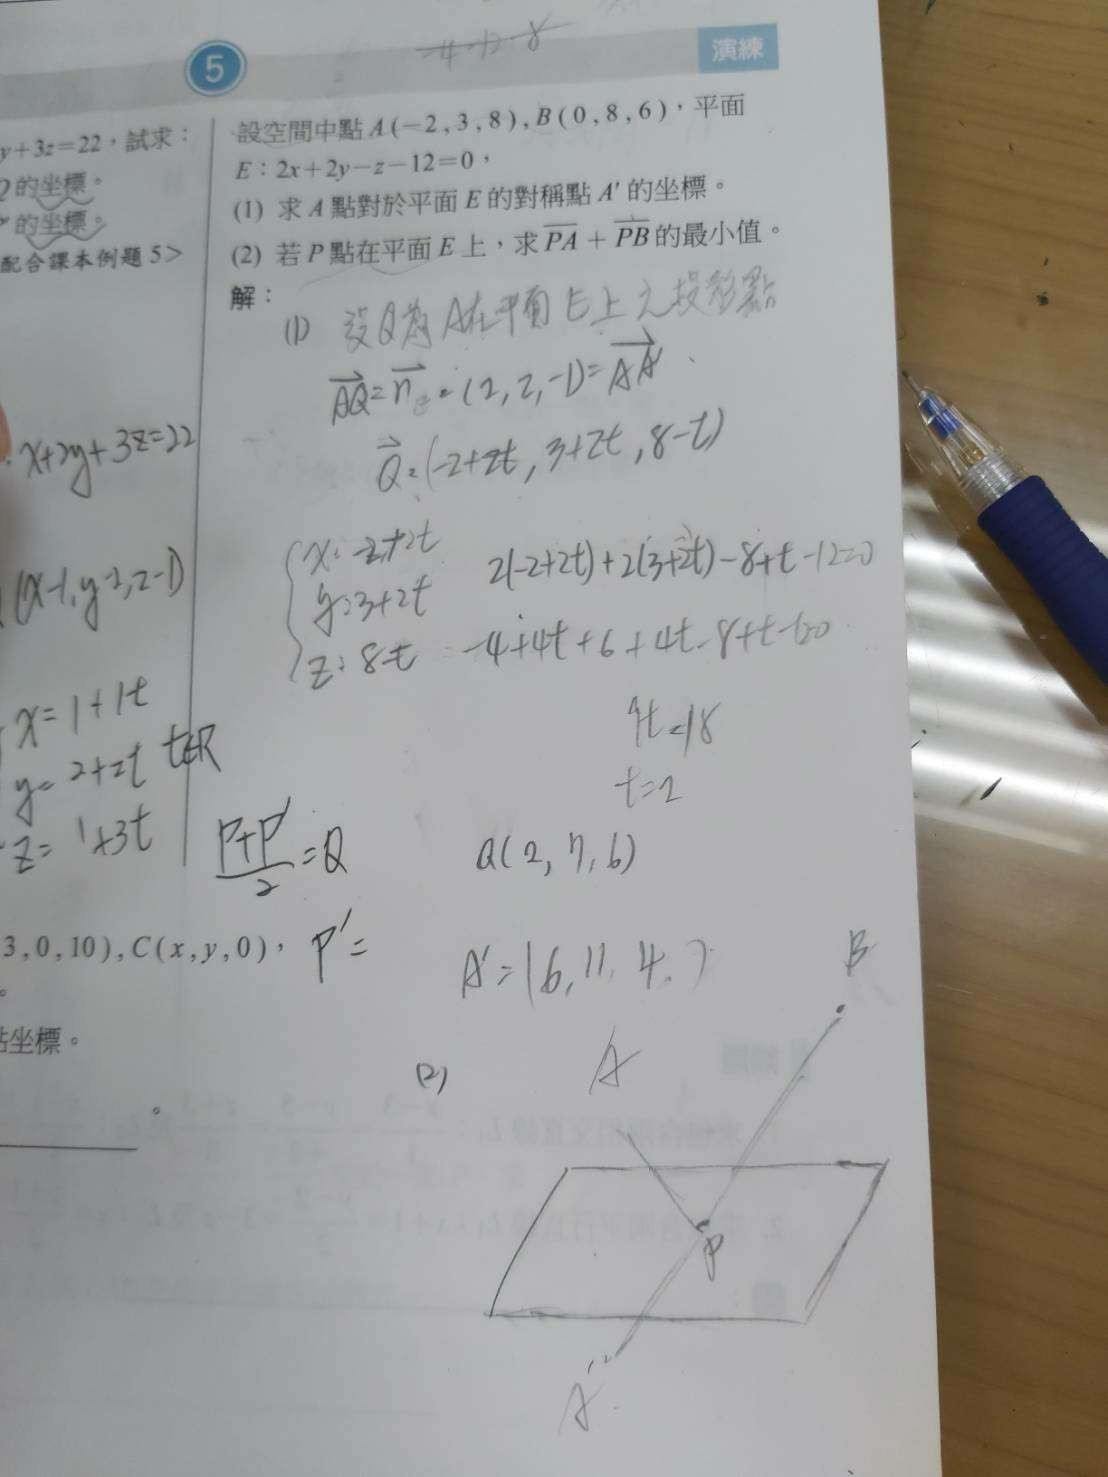 -4-12-8
5
演練
y+3z=22，試求：
Q的坐標。
的坐標。
配合課本例題 5>
x+2y+3z=22
(x-1,y-2,z-1)
x=1+1t
y=2+2t t∈R
z=1+3t
3,0,10),C(x,y,0)，
。
點坐標。
。
設空間中點 A(-2,3,8),B(0,8,6)，平面
E：2x+2y-z-12=0，
(1) 求 A 點對於平面 E 的對稱點 A' 的坐標。
(2) 若 P 點在平面 E 上，求 PA + PB 的最小值。
解：
(1) 設Q為A在平面E上之投影點
AQ=n=(2,2,-1)=AA'
Q=(-2+2t,3+2t,8-t)
x=-2+2t 2(-2+2t)+2(3+2t)-8+t-12=0
y=3+2t
z=8-t -4+4t+6+4t-8+t-12=0
9t=18
t=2
P+P'/2=Q
Q(2,7,6)
P'=
A'=(6,11,4)
(2)
A
B
P
A'